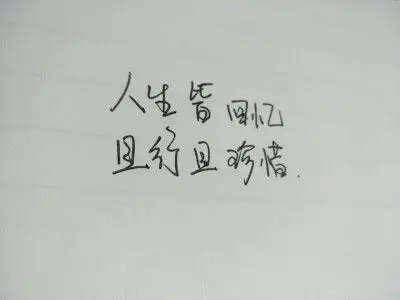 人生皆回忆
且行且珍惜.